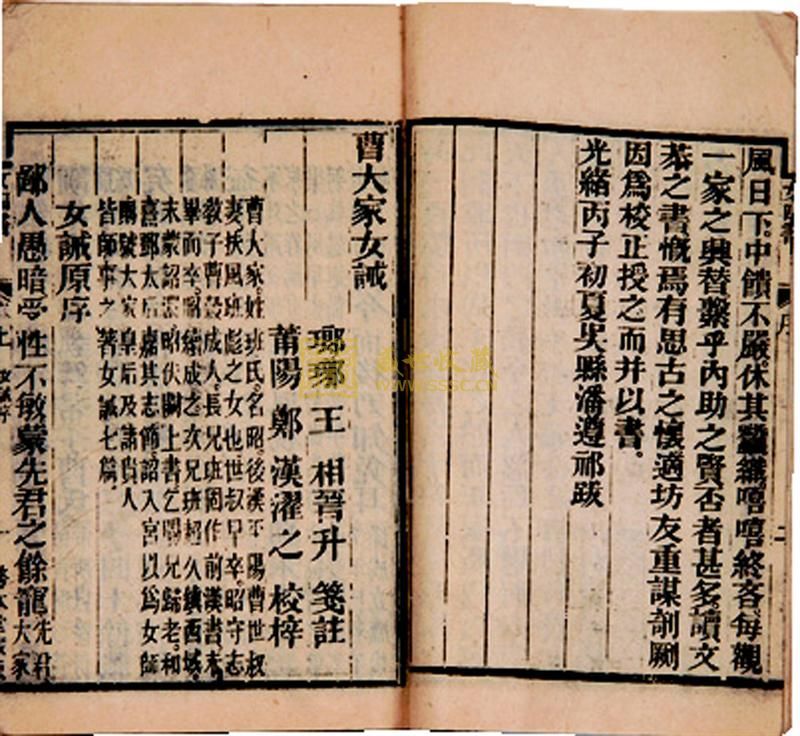 風日下。中饋不嚴。休其蠶織。嘻嘻終吝。每觀
一家之興替繫乎內助之賢否者甚多。讀文
恭之書慨焉有思古之懷適坊友重謀剞劂
因爲校正授之而并以書。
光緒丙子初夏吳縣潘遵祁跋
序
二
曹大家女誡
瑯琊 王 相晉升 箋註
莆陽 鄭 漢濯之 校梓
曹大家。姓班氏。名昭。後漢平陽曹世叔
妻。扶風班彪之女也世叔早卒。昭守志
教子曹穀成人。長兄班固作前漢書未
畢而卒。昭續成之次兄班超久鎮西域。
未蒙詔還昭伏闕上書乞賜兄歸老。和
熹鄧太后嘉其志節。詔入宮以爲女師
賜號大家皇后及諸貴人
皆師事之著女誡七篇。
女誡原序
鄙人愚暗受性不敏蒙先君之餘寵先君。大家
盛世收藏
www.sssc.cn